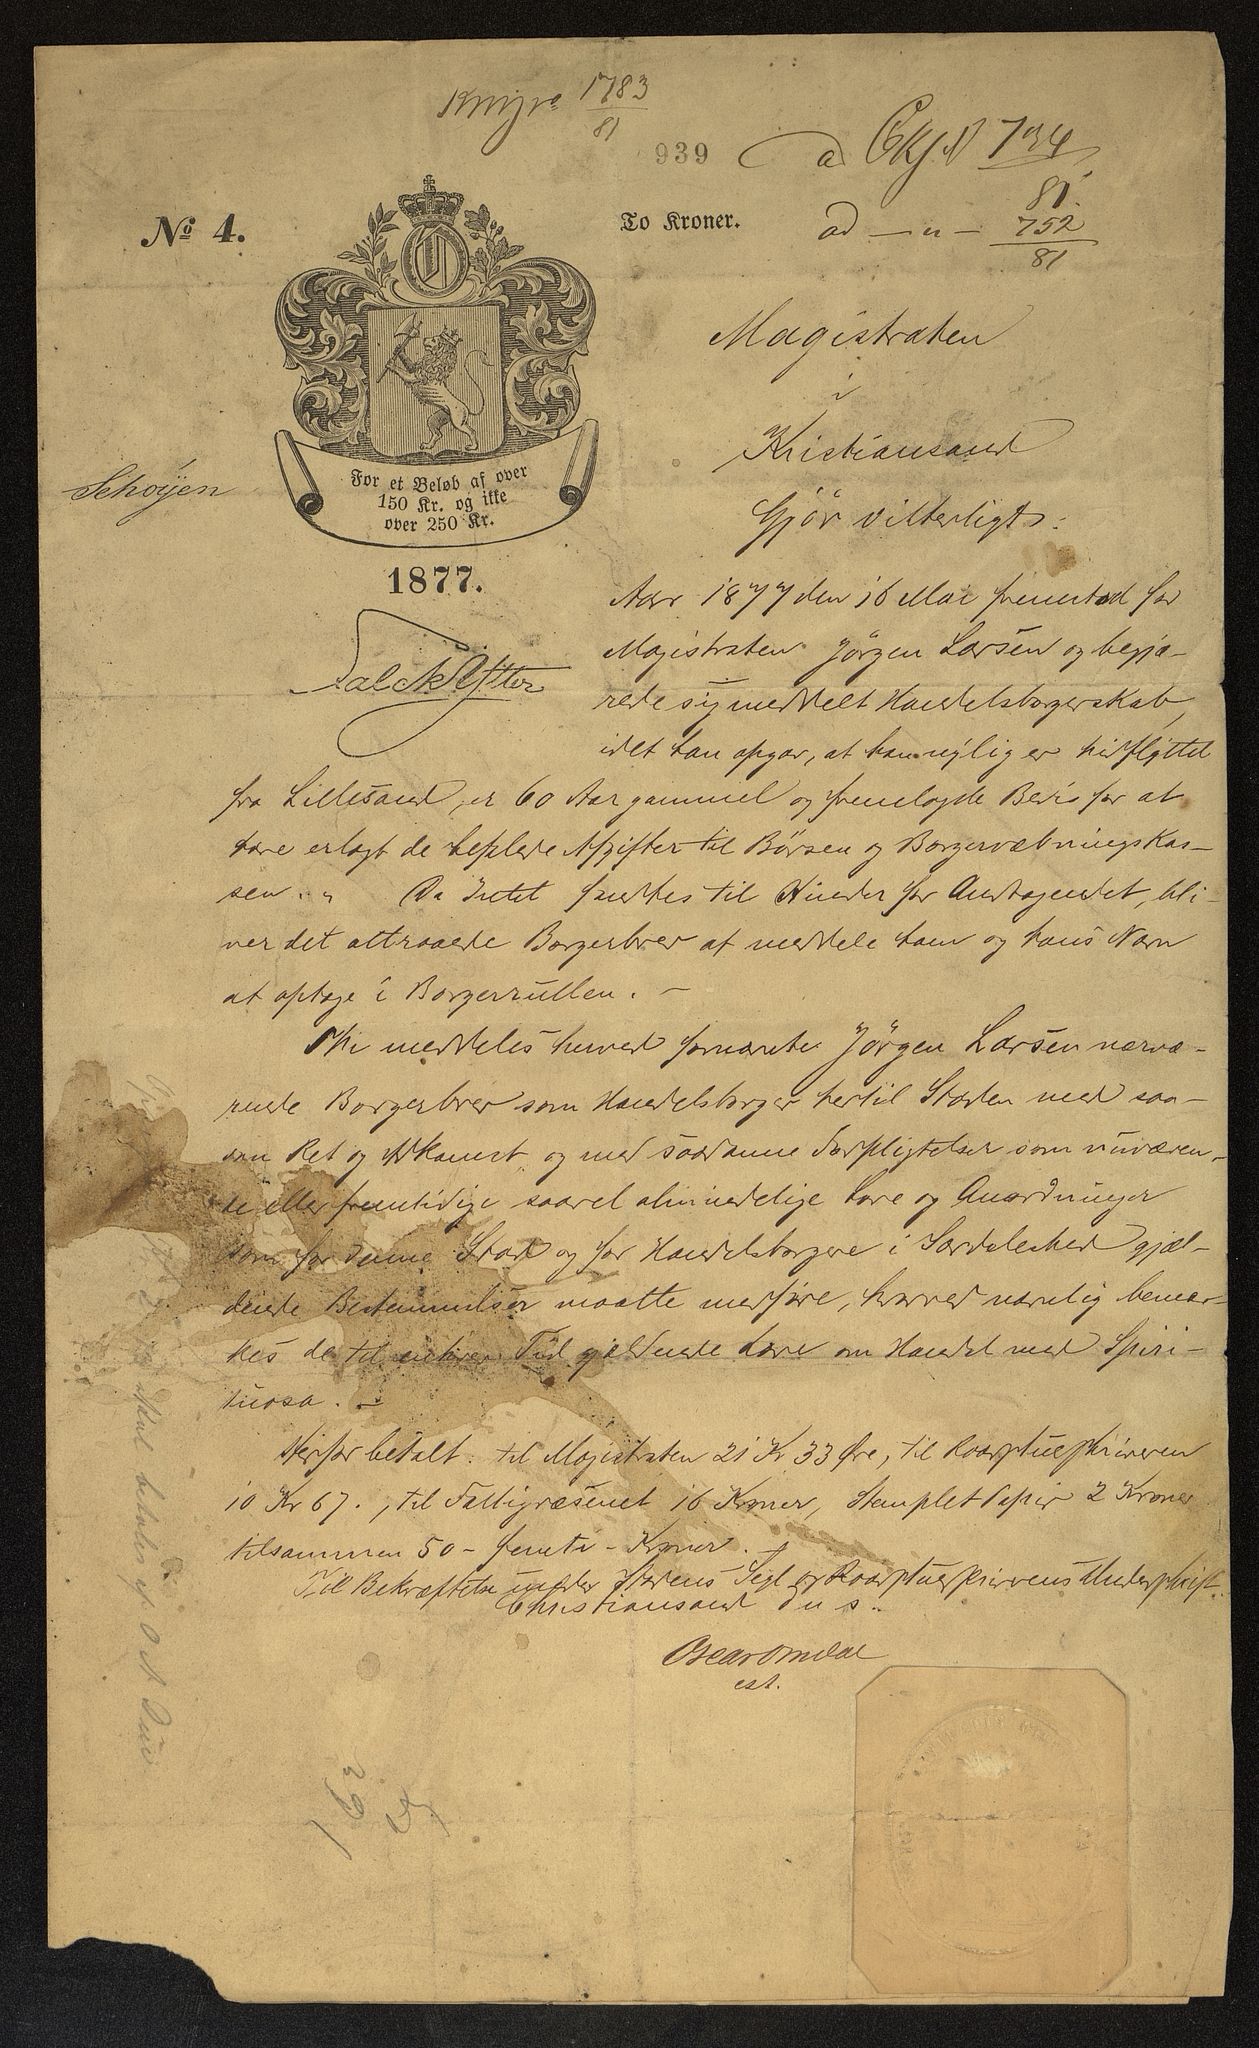 1783
81
939 ad 734
81
No 4.
To Kroner.
ad — " — 752
81
Magistraten
i
Kristiansand
Schøyen
For et Beløb af over
150 Kr. og ikke
over 250 Kr.
Gjör vitterligt:
1877.
Aar 1877 den 16 Mai fremstod for
Magistraten Jörgen Larsen og begjæ-
rede sig meddelt Handelsborgerskab,
idet han opgav, at han nylig er hidflyttet
fra Lillesand, er 60 Aar gammel og fremlagde Bevis for at
have erlagt de befalede Afgifter til Börsen og Borgervæbningskas-
sen. " Da Intet fandtes til Hinder for Andragendet, bli-
ver det attraaede Borgerbrev at meddele ham og hans Navn
at optage i Borgerrullen. —
Thi meddeles herved fornævnte Jörgen Larsen nærvæ-
rende Borgerbrev som Handelsborger hertil Staden med saa-
dan Ret og Adkomst og med saadanne Forpligtelser som nuværen-
de eller fremtidige saavel almindelige Love og Anordninger
som for denne Stad og for Handelsborgere i Særdeleshed gjæl-
dende Bestemmelser maatte medføre, hvorved navnlig bemær-
kes de til enhver Tid gjældende Love om Handel med Spiri-
tuosa. —
Herfor betalt: til Magistraten 21 Kr 33 Øre, til Raadstueskriveren
10 Kr 67., til Fattigvæsenet 16 Kroner, Stemplet Papir 2 Kroner
tilsammen 50 – femti – Kroner.
Til Bekræftelse under Stadens Segl og Raadstueskriverens Underskrift.
Christiansand d u s.
Oscar Omdal
cst.